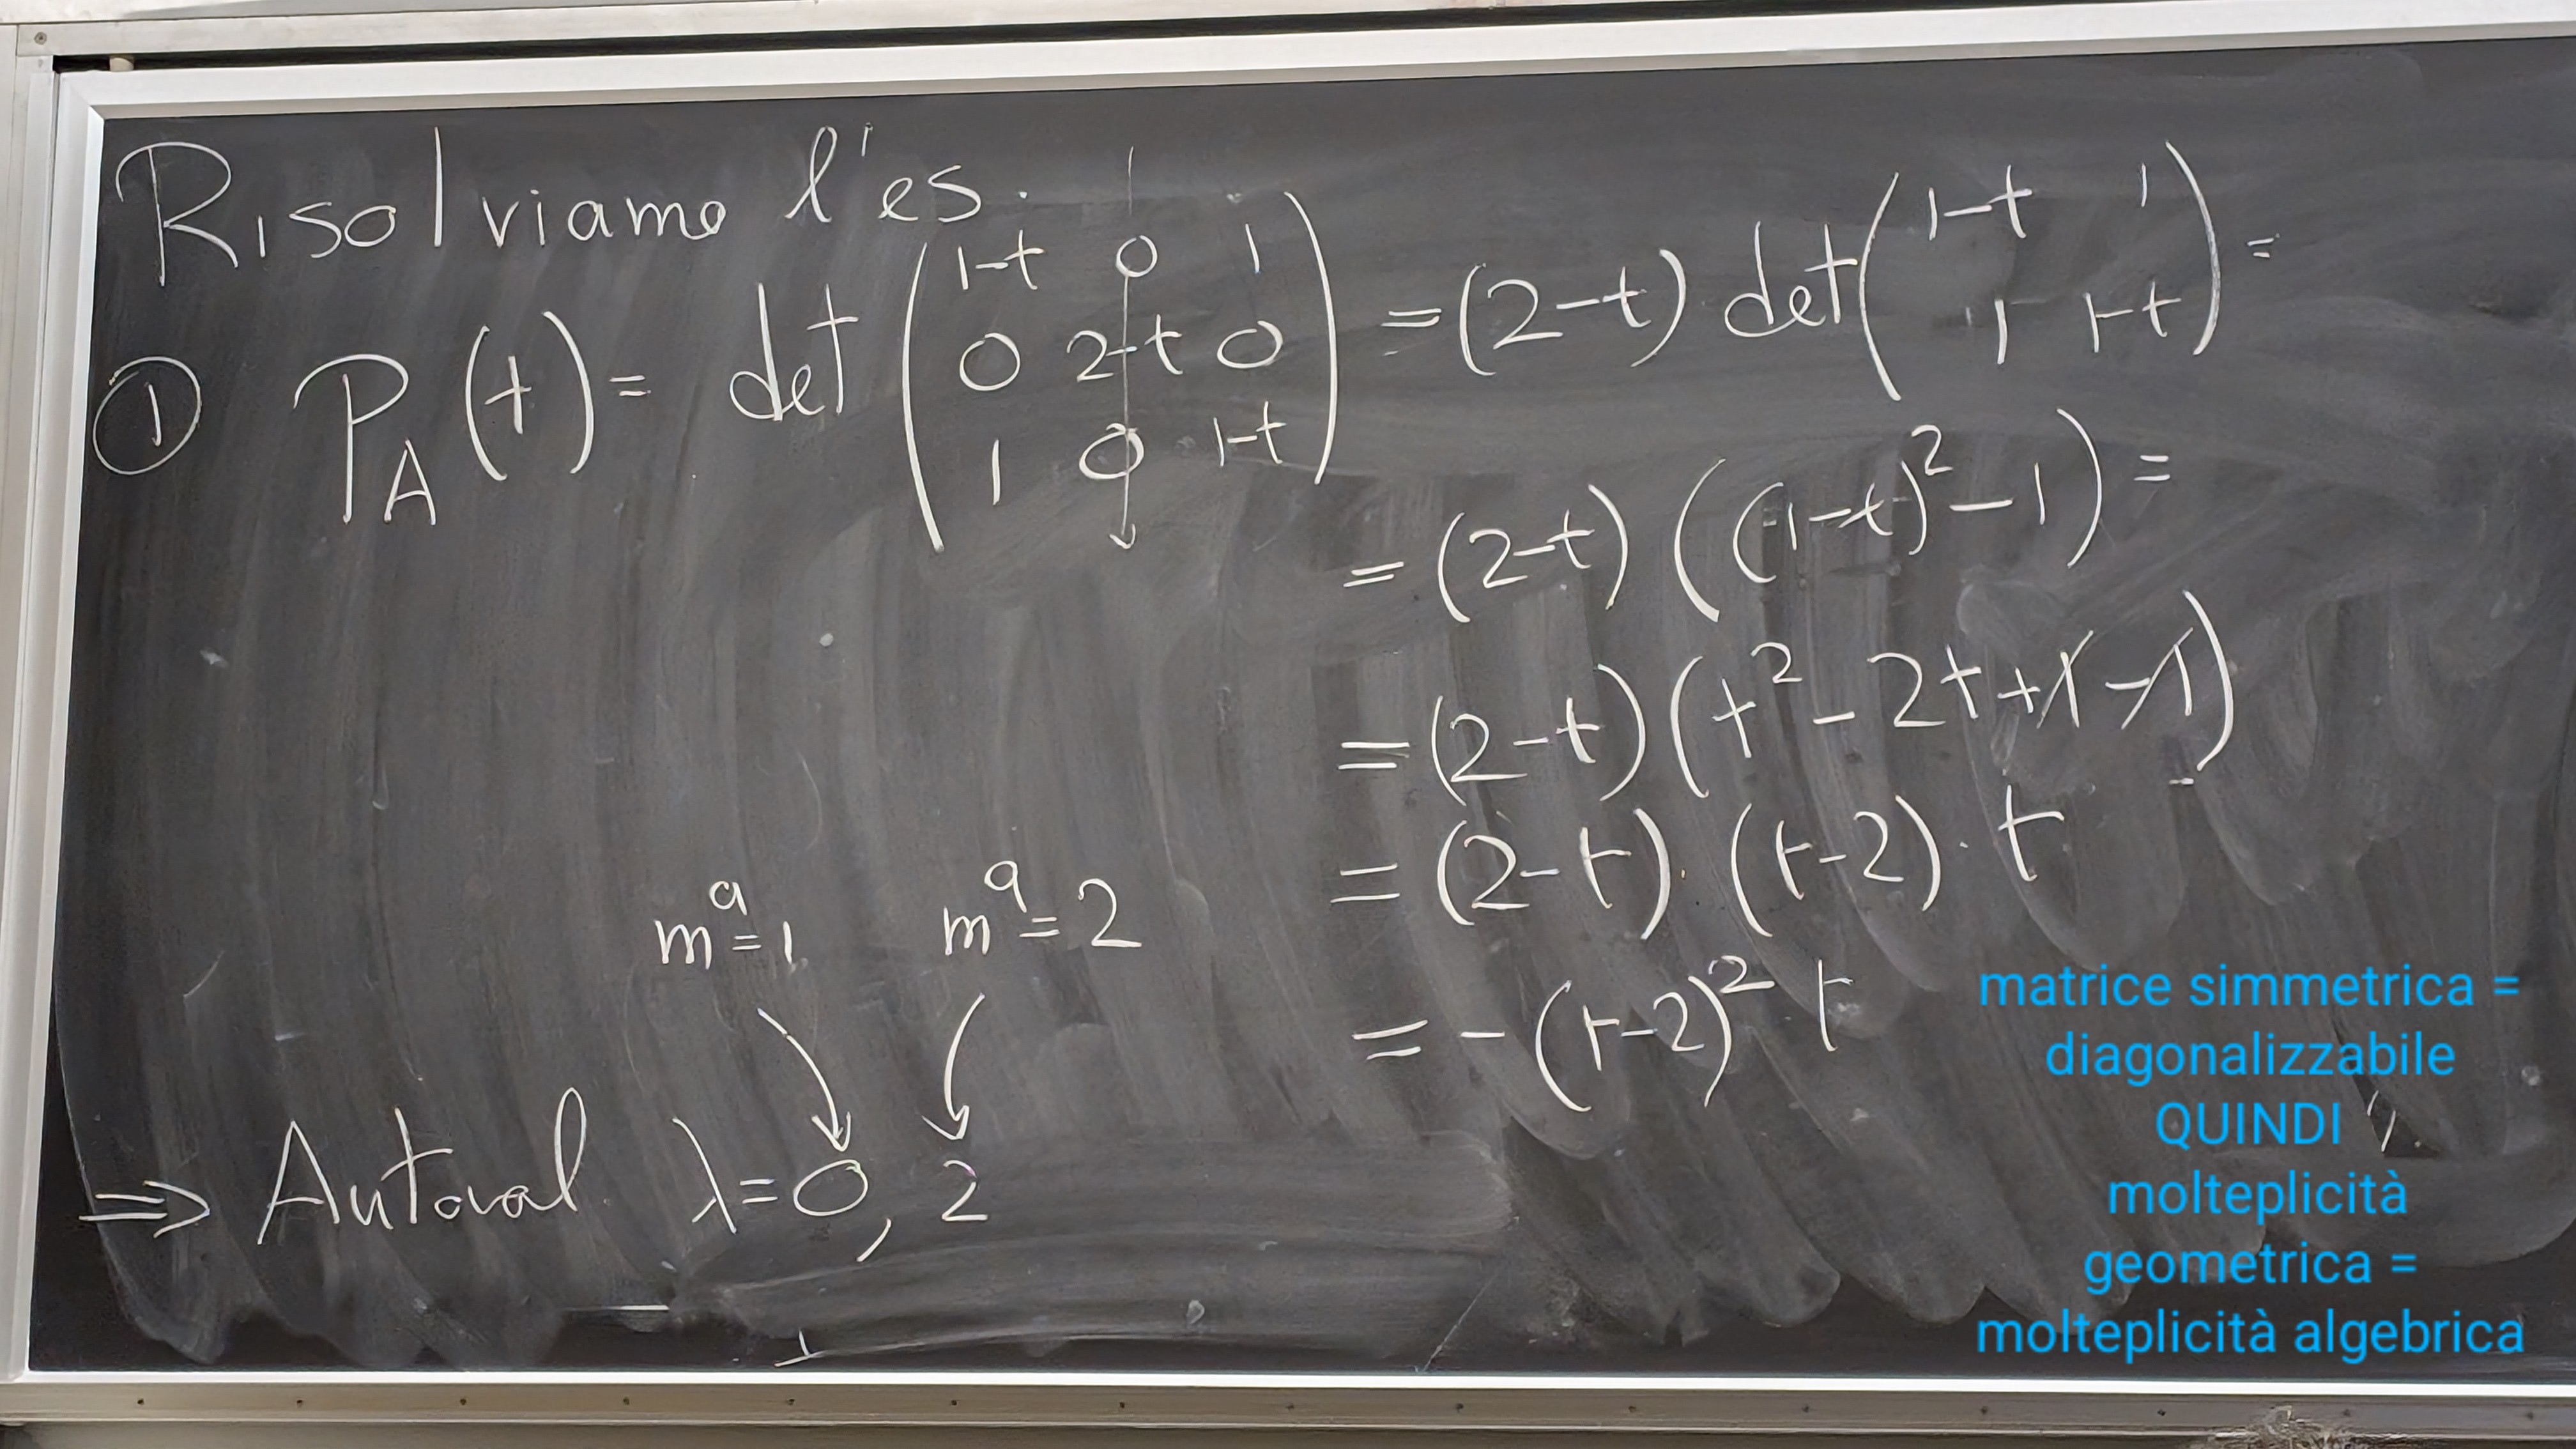 Risolviamo l'es.
① P_A(t) = det ( 1-t 0 1 ; 0 2-t 0 ; 1 0 1-t ) = (2-t) det ( 1-t 1 ; 1 1-t ) =
= (2-t) ((1-t)² - 1) =
= (2-t) (t² - 2t + 1 - 1)
= (2-t) · (t-2) · t
= - (t-2)² t
mᵃ = 1 mᵃ = 2
⇒ Autoval. λ = 0, 2
matrice simmetrica =
diagonalizzabile
QUINDI
molteplicità
geometrica =
molteplicità algebrica